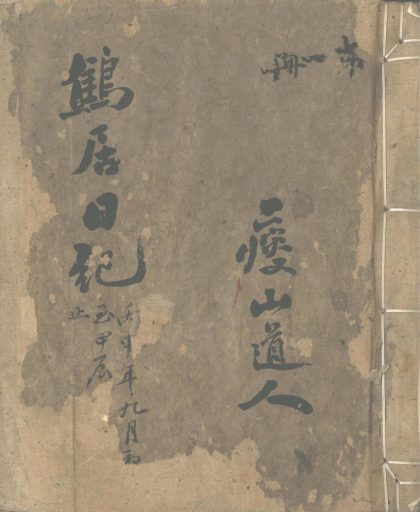 第一冊
瘦山道人
鶴居日記
丙申年九月初
至甲辰
止